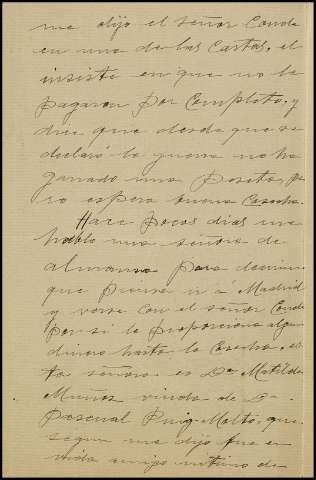 me dijo el señor Conde
en una de las Cartas, el
insiste en que no le
pagaron por Completo, y
dice que desde que se
declaró la guerra no ha
ganado una peseta, pe
ro espera buena Cosecha.
Hace pocos dias me
hablo una señora de
almansa para decirme
que piensa ir á Madrid
y verse con el señor Conde
por si le proporciona algun
dinero hasta la Cosecha, es
ta señora es Dª Matilde
Muñoz viuda de Dⁿ
Pascual Puig-Molto, que
segun me dijo fue en
vida amigo intimo de